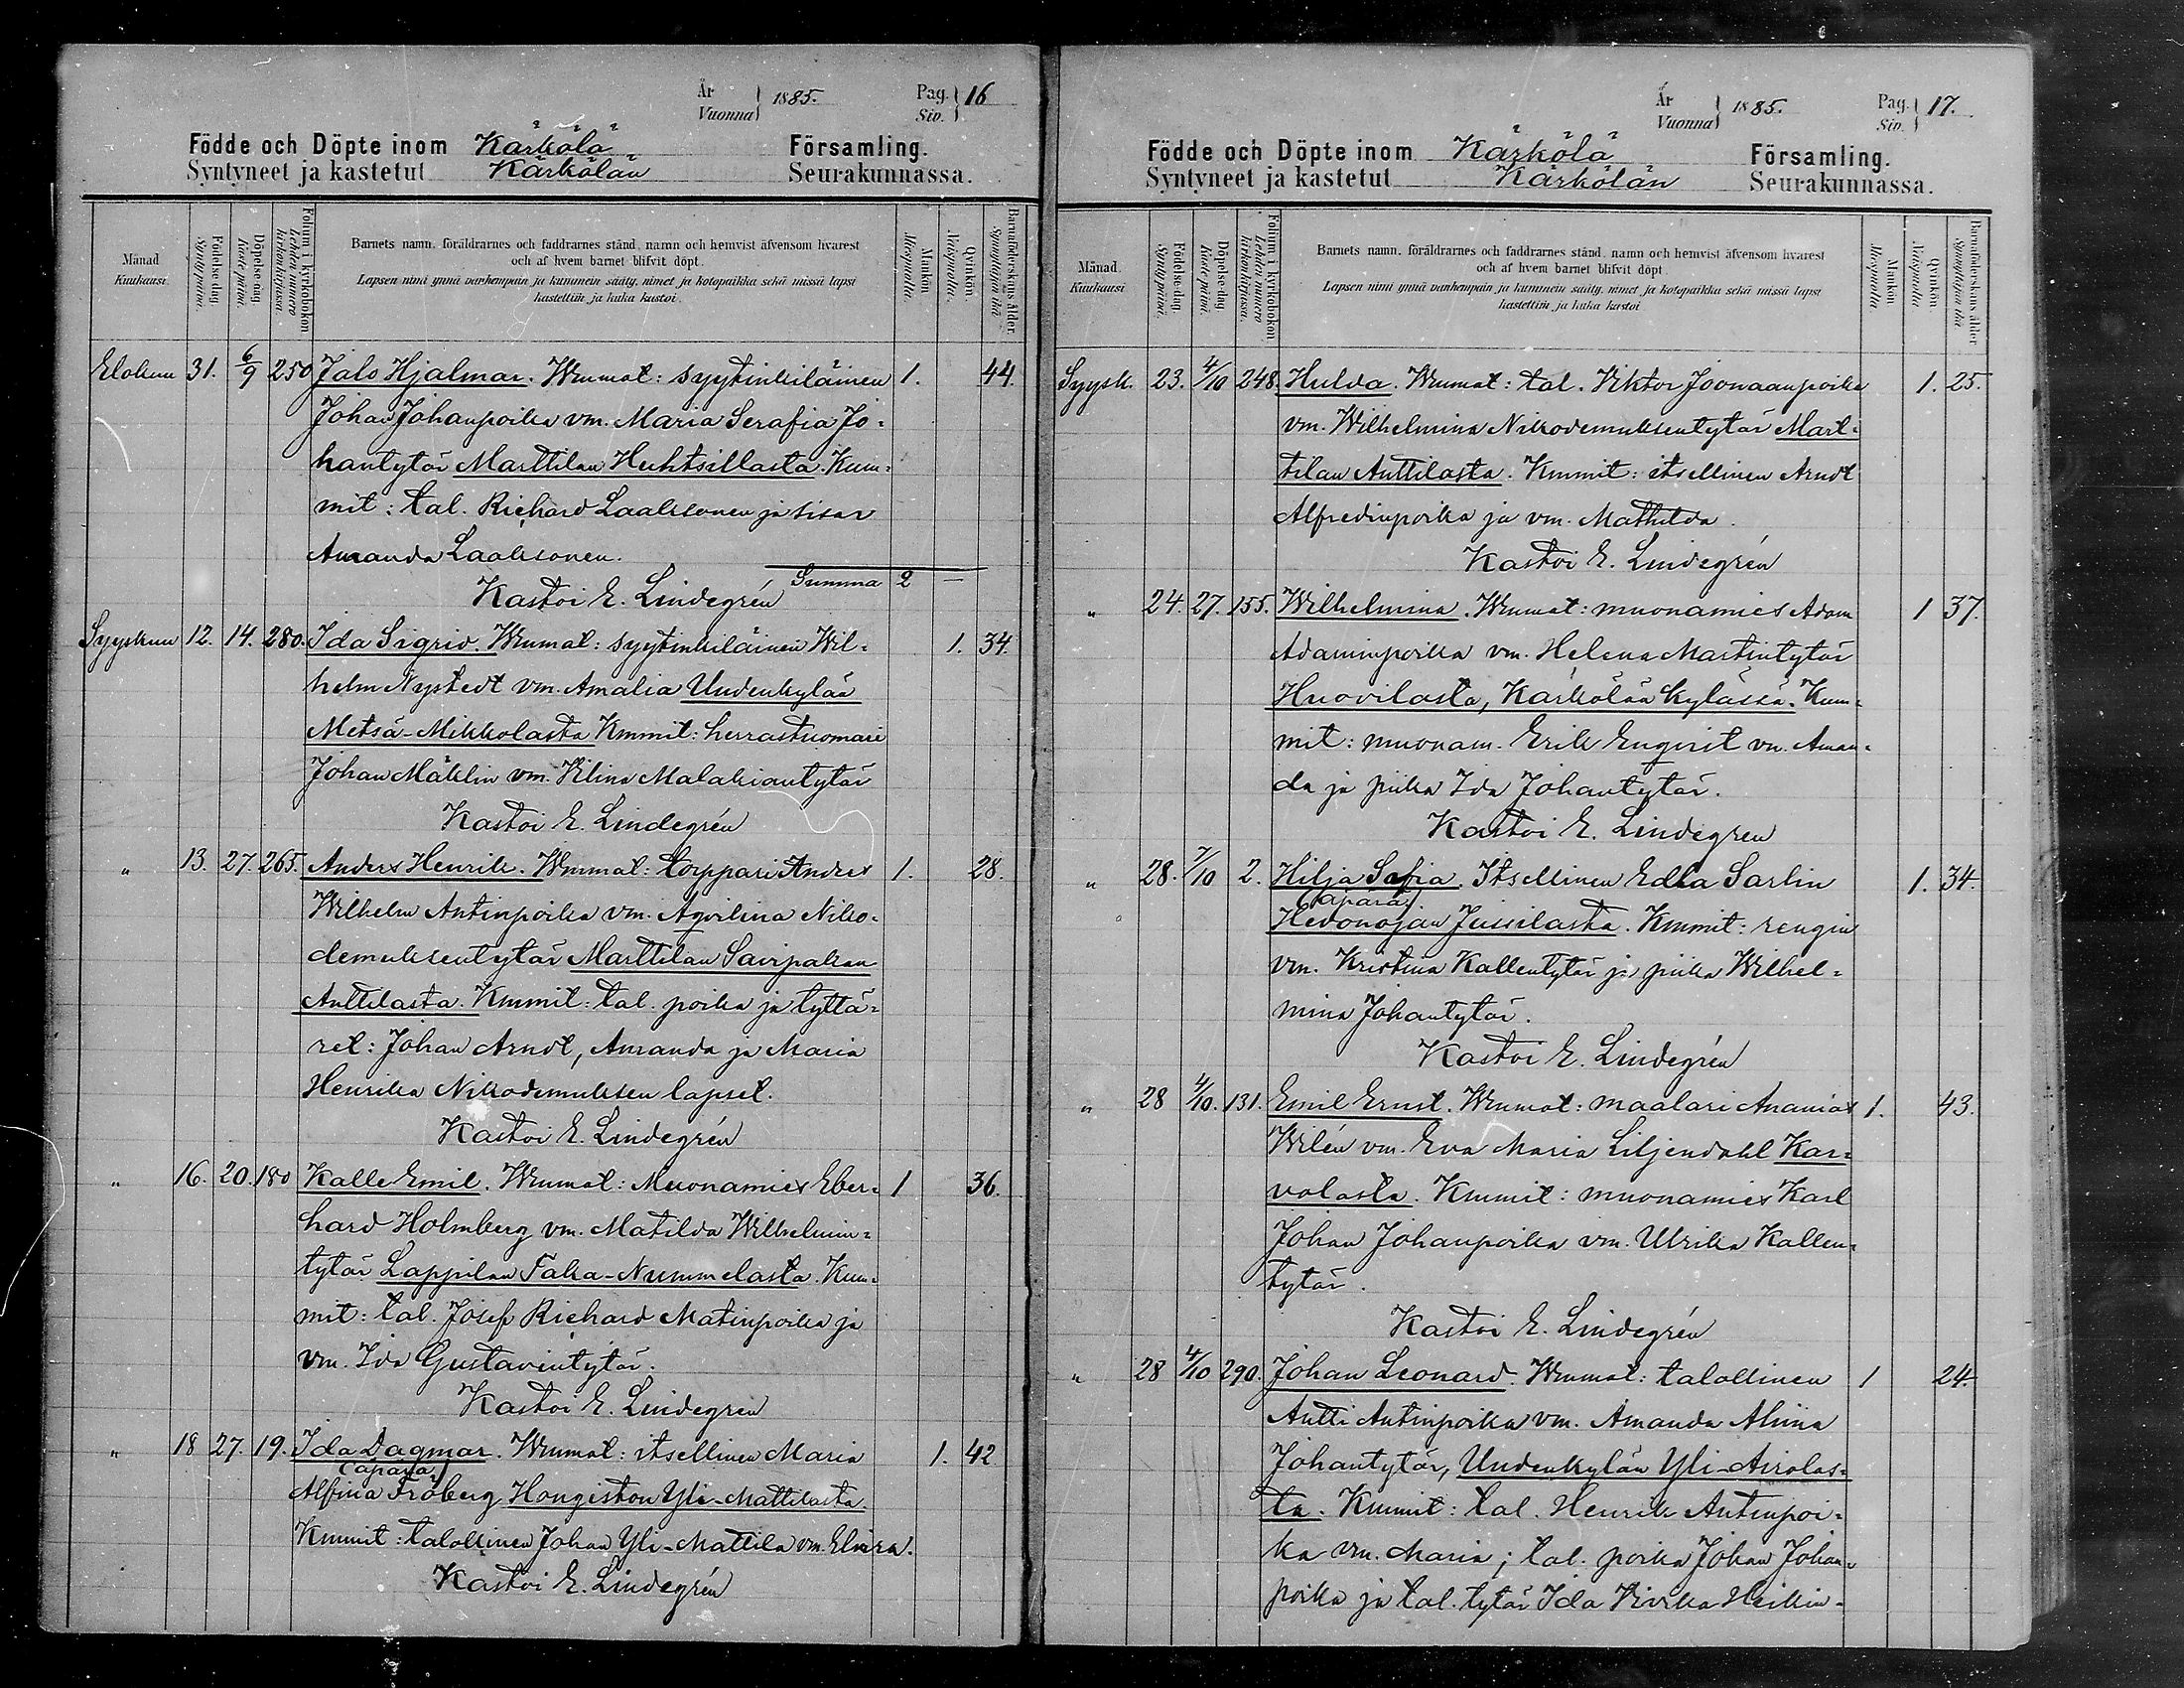 År
Vuonna } 1885. Pag.
Siv. } 16
Födde och Döpte inom Kärkölä Församling.
Syntyneet ja kastetut Kärkölän Seurakunnassa.
Månad
Kuukausi.
Födelse-dag
Syntypäivä.
Döpelse-dag
Kaste-päivä.
Folium i kyrkoboken
Lehden numero kirkonkirjassa.
Barnets namn, föräldrarnes och faddrarnes stånd, namn och hemvist äfvensom hvarest
och af hvem barnet blifvit döpt.
Lapsen nimi ynnä vanhempain ja kummein sääty, nimet ja kotopaikka sekä missä lapsi
kastettiin ja kuka kastoi.
Mankön
Miespuolia.
Qvinkön
Naispuolia.
Barnaföderskans ålder.
Synnyttäjän ikä
Elokuu 31. 6/9 250 Jalo Hjalmar. Wmmat: syytinkiläinen 1. 44.
Johan Johanpoika vm. Maria Serafia Jo-
hantytär Marttilan Huhtsillasta. Kum-
mit: tal. Richard Laaksonen ja sisar
Amanda Laaksonen.
Summa 2 —
Kastoi E. Lindegrén
Syyskuu 12. 14. 280. Ida Sigrid. Wmmat: syytinkiläinen Wil- 1. 34.
helm Nystedt vm. Amalia Uudenkylän
Metsä-Mikkolasta Kmmit: herrastuomari
Johan Mäklin vm. Vilina Malakiantytär
Kastoi E. Lindegrén
" 13. 27. 265. Anders Henrik. Wmmat: torppari Anders 1. 28.
Wilhelm Antinpoika vm. Aqvilina Niko-
demuksentytär Marttilan Savipakan
Anttilasta. Kmmit: tal. poika ja tyttä-
ret: Johan Arndt, Amanda ja Maria
Henrika Nikodemuksen lapset.
Kastoi E. Lindegrén
" 16. 20. 180 Kalle Emil. Wmmat: Muonamies Eber- 1 36.
hard Holmberg vm. Matilda Wilhelmin-
tytär Lappilan Taka-Nummelasta. Kum-
mit: tal. Josef Richard Matinpoika ja
vm. Ida Gustavintytär.
Kastoi E. Lindegrén
" 18 27. 19. Ida Dagmar. Wmmat: itsellinen Maria 1. 42
(äpärä)
Alfina Fröberg Hongiston Yli-Mattilasta.
Kmmit: talollinen Johan Yli-Mattila vm. Elvira.
Kastoi E. Lindegrén
År
Vuonna } 1885. Pag.
Siv. } 17.
Födde och Döpte inom Kärkölä Församling.
Syntyneet ja kastetut Kärkölän Seurakunnassa.
Månad.
Kuukausi
Födelse-dag
Syntypäivä.
Döpelse-dag
Kaste-päivä
Folium i kyrkoboken
Lehden numero kirkonkirjassa.
Barnets namn, föräldrarnes och faddrarnes stånd, namn och hemvist äfvensom hvarest
och af hvem barnet blifvit döpt.
Lapsen nimi ynnä vanhempain ja kummein sääty, nimet ja kotopaikka sekä missä lapsi
kastettiin ja kuka kastoi
Mankön
Miespuolia
Qvinkön
Naispuolia
Barnaföderskans ålder
Synnyttäjän ikä
Syysk. 23. 4/10 248. Hulda. Wmmat: tal. Viktor Joonaanpoika 1. 25.
vm. Wilhelmina Nikodemuksentytär Mart-
tilan Anttilasta. Kmmit: itsellinen Arndt
Alfredinpoika ja vm. Mathilda.
Kastoi E. Lindegrén
" 24. 27. 155. Wilhelmina. Wmmat: muonamies Adam 1 37.
Adaminpoika vm. Helena Martintytär
Huovilasta, Kärkölän kylässä. Kum-
mit: muonam. Erik Enqvist vm. Aman-
da ja piika Ida Johantytär.
Kastoi E. Lindegren
" 28. 7/10 2. Hilja Sofia. Itsellinen Edla Sarlin 1. 34.
(äpärä)
Hevonojan Jussilasta. Kmmit: rengin
vm. Kristina Kallentytär ja piika Wilhel-
mina Johantytär.
Kastoi E. Lindegrén
" 28 4/10. 131. Emil Ernst. Wmmat: maalari Ananias 1. 43.
Wilén vm. Eva Maria Liljendahl Kar-
volasta. Kmmit: muonamies Karl
Johan Johanpoika vm. Ulrika Kallen-
tytär.
Kastoi E. Lindegrén
" 28 4/10 290. Johan Leonard. Wmmat: talollinen 1 24.
Antti Antinpoika vm. Amanda Alina
Johantytär, Uudenkylän Yli-Airolas-
ta. Kmmit: tal. Henrik Antinpoi-
ka vm. Maria; tal. poika Johan Johan-
poika ja tal. tytär Ida Vivika Heikin-